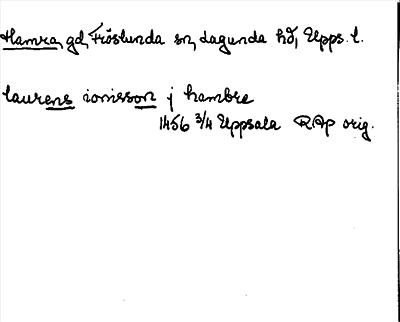 Hamra, gd, Fröslunda sn, Lagunda hd, Upps. l.
laurens ionisson j hambre
1456 3/4 Uppsala RAp orig.